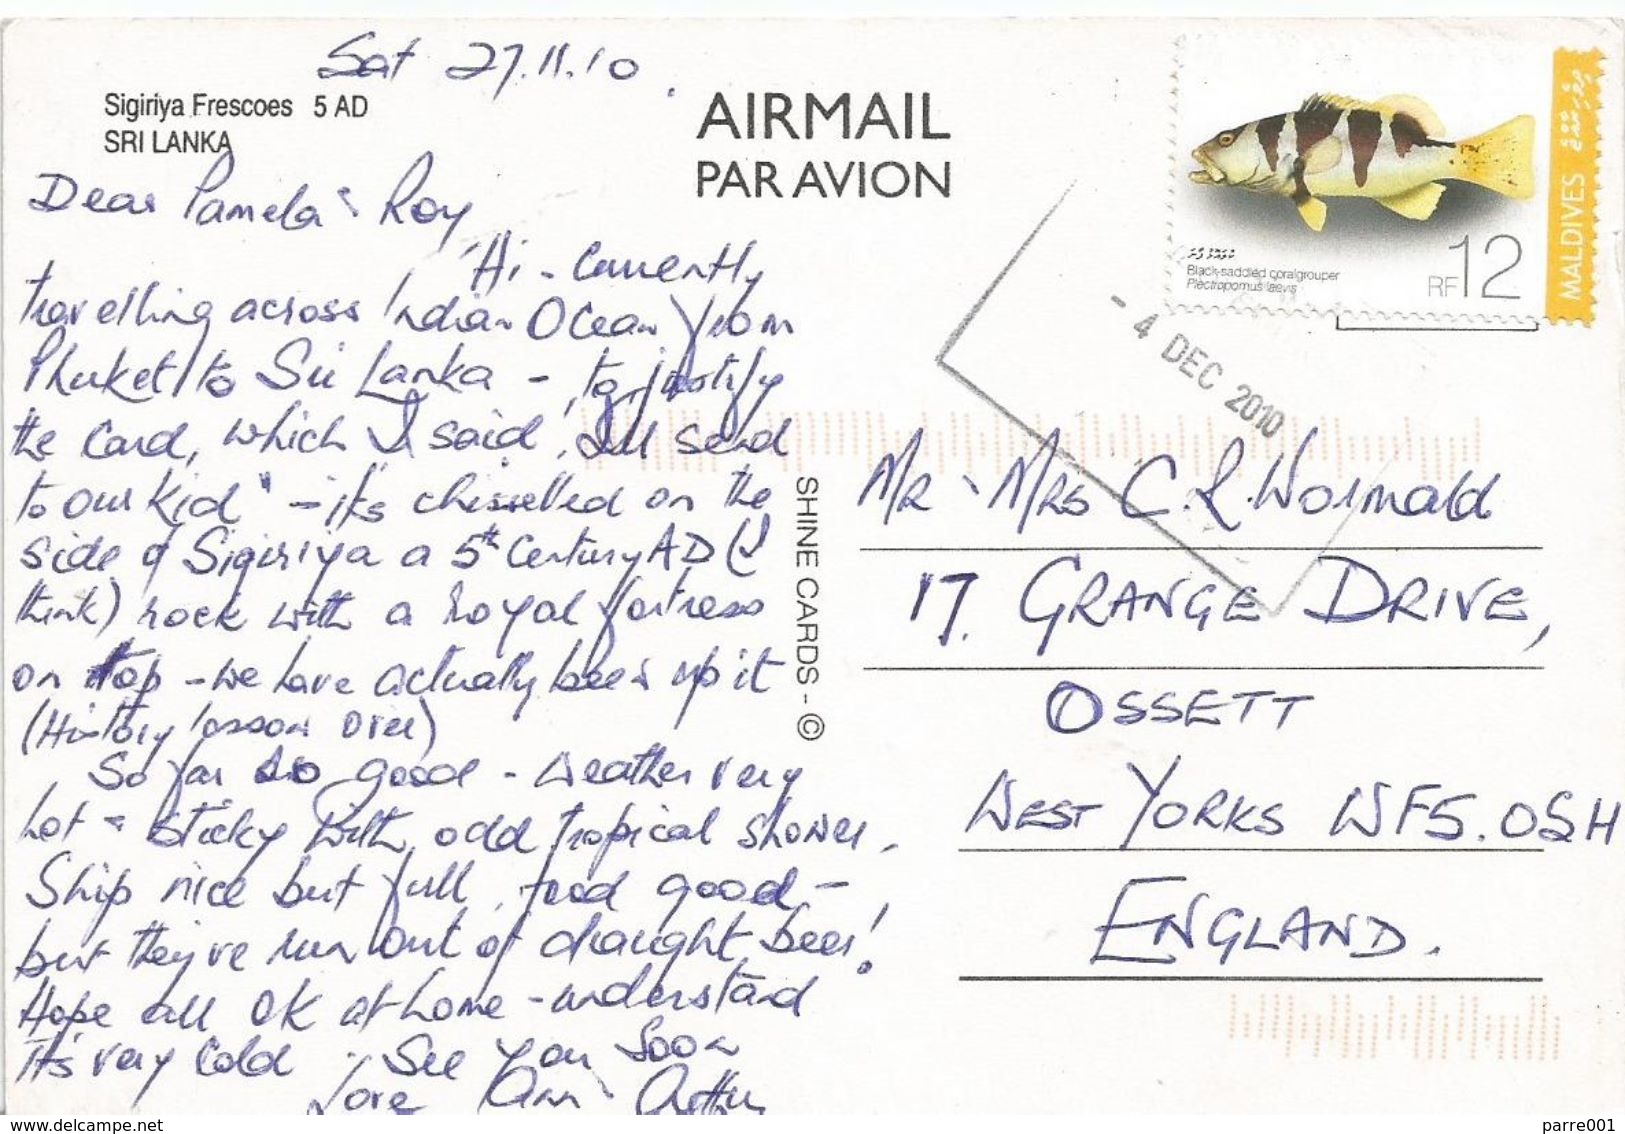 Sat 27.11.10
Sigiriya Frescoes 5 AD
SRI LANKA
AIRMAIL
PAR AVION
Dear Pamela & Roy,
Hi - Currently
travelling across Indian Ocean from
Phuket to Sri Lanka - to justify
the card, which I said "I'll send
to our kid" - it's chisselled on the
side of Sigiriya a 5th Century AD (I
think) rock with a royal fortress
on top - we have actually been up it
(History lesson over)
So far so good - weather very
hot & sticky with odd tropical shower.
Ship nice but full, food good -
but they've run out of draught beer!
Hope all OK at home - understand
it's very cold. See you soon
Love Ann & Arthur
SHINE CARDS - ©
MALDIVES
Black-saddled coralgrouper
Plectropomus laevis
RF 12
- 4 DEC 2010
Mr & Mrs C. R. Wormald
17. GRANGE DRIVE,
OSSETT
WEST YORKS WF5.OSH
ENGLAND.
www.delcampe.net
parre001